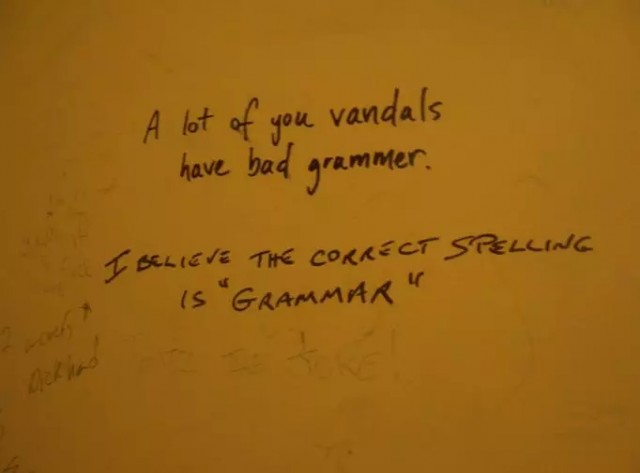 A lot of you vandals
have bad grammer.
I BELIEVE THE CORRECT SPELLING
IS "GRAMMAR"